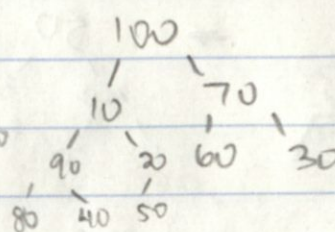 100
10 70
90 20 60 30
80 40 50